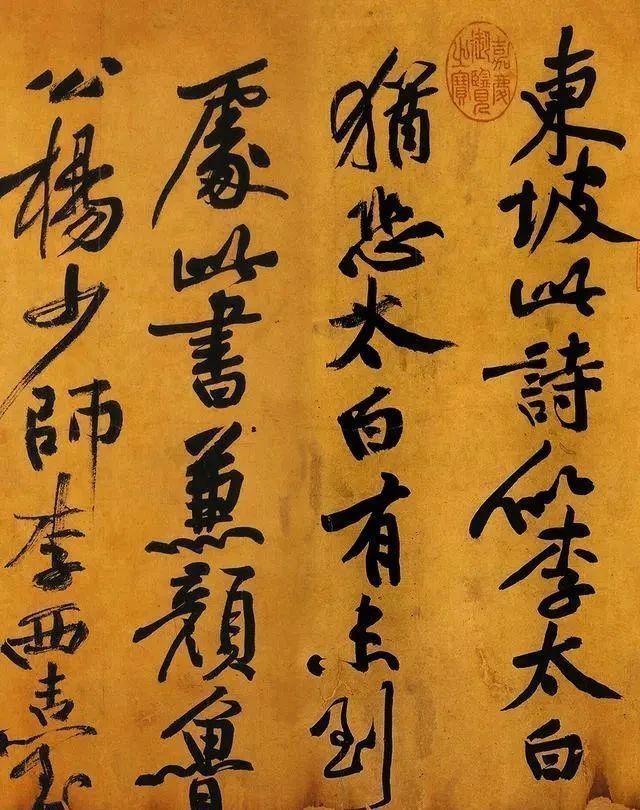 嘉慶御覽之寶
東坡此詩似李太白
猶恐太白有未到
處此書兼顏魯
公楊少師李西臺